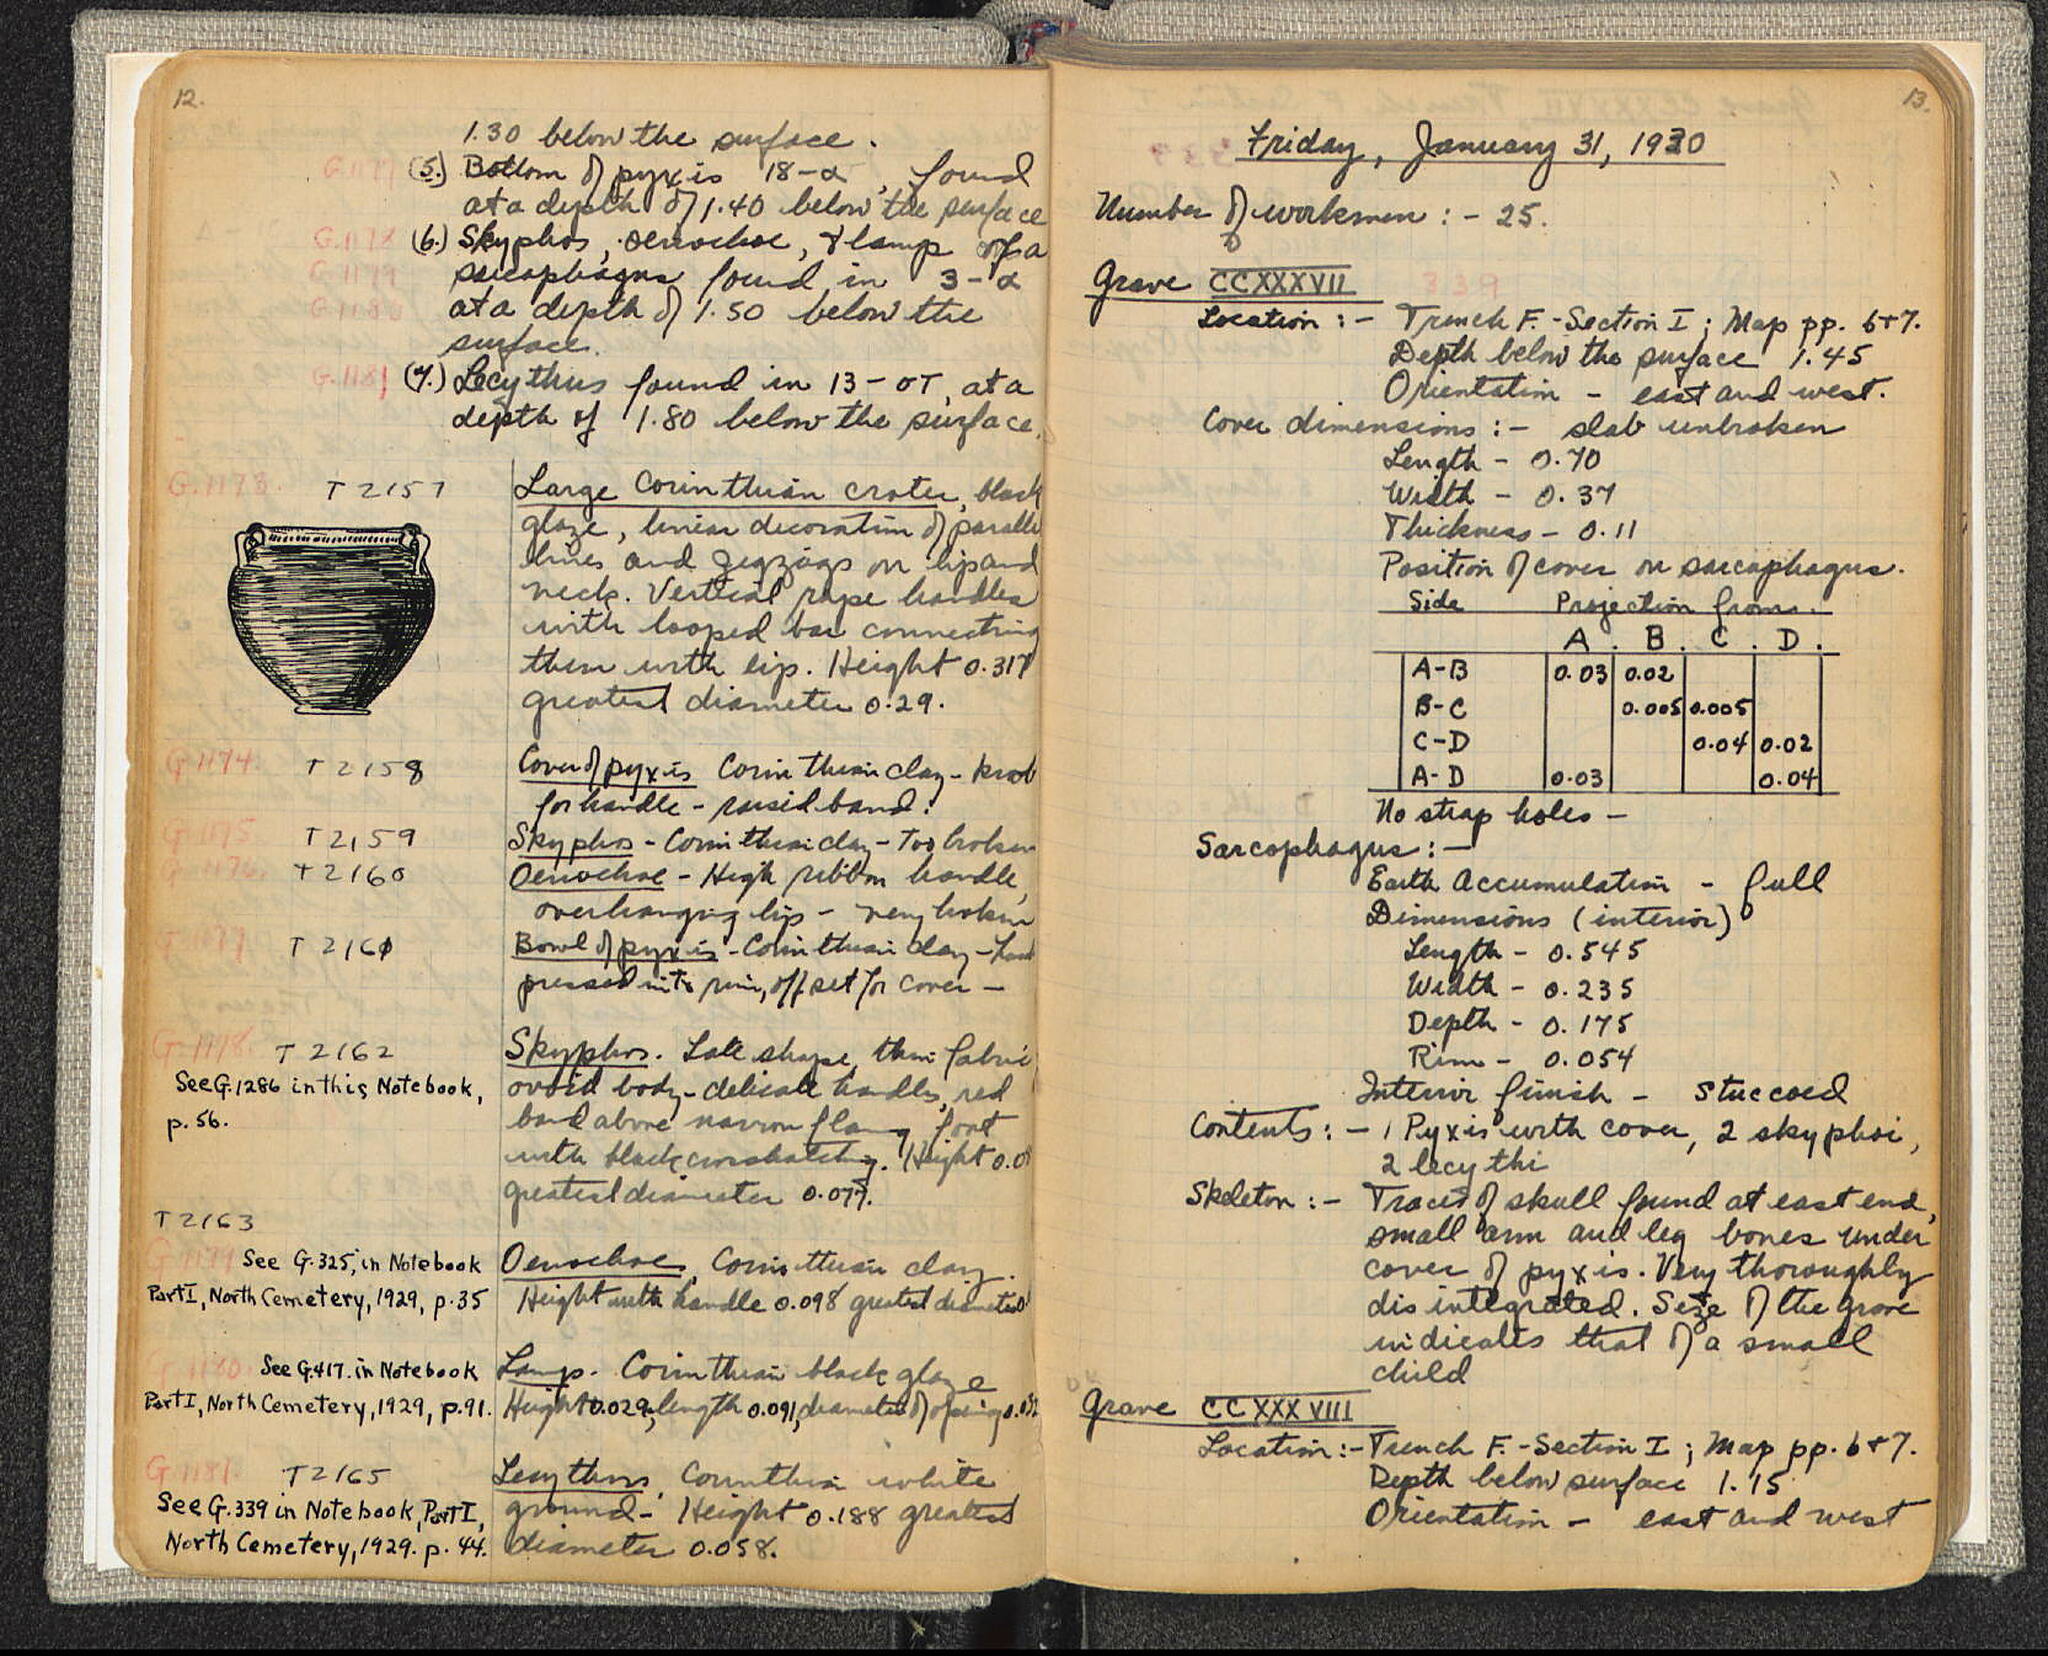 12.
1.30 below the surface.
G.1177 (5.) Bottom of pyxis 18-α, found
at a depth of 1.40 below the surface
G.1178 (6.) Skyphos, oenochoe, & lamp off a
G.1179 sarcophagus found in 3-α
G.1180 at a depth of 1.50 below the
surface.
G.1181 (7.) Lecythus found in 13-στ, at a
depth of 1.80 below the surface.
G.1173. T 2157 Large Corinthian crater, black
glaze, linear decoration of parallel
lines and zigzags on lip and
neck. Vertical rope handles
with looped bar connecting
them with lip. Height 0.317
greatest diameter 0.29.
G.1174. T 2158 Cover of pyxis Corinthian clay - knob
for handle - raised band.
G.1175 T 2159 Skyphos - Corinthian clay - Too broken
G.1176. T 2160 Oenochoe - High ribbon handle,
overhanging lip - very broken
G.1177. T 2161 Bowl of pyxis - Corinthian clay -
pressed into rim, offset for cover -
G.1178. T 2162 Skyphos. Late shape, thin fabric
See G.1286 in this Notebook, ovoid body - delicate handles, red
p.56. band above narrow flaring foot
with black crosshatching. Height
greatest diameter 0.077.
T 2163
G.1179 See G.325, in Notebook Oenochoe, Corinthian clay.
Part I, North Cemetery, 1929, p.35 Height with handle 0.098 greatest diameter
G.1180. See G.417. in Notebook Lamp. Corinthian black glaze
Part I, North Cemetery, 1929, p.91. Height 0.029, length 0.091, diameter of opening
G.1181. T 2165 Lecythus, Corinthian white
See G.339 in Notebook, Part I, ground - Height 0.188 greatest
North Cemetery, 1929. p.44. diameter 0.058.
13.
Friday, January 31, 1930
Number of workmen :- 25.
Grave CCXXXVII 339
Location :- Trench F. - Section I ; Map pp. 6+7.
Depth below the surface 1.45
Orientation - east and west.
Cover dimensions :- slab unbroken
Length - 0.70
Width - 0.37
Thickness - 0.11
Position of cover on sarcophagus.
Side Projection from.
A. B. C. D.
A-B 0.03 0.02
B-C 0.005 0.005
C-D 0.04 0.02
A-D 0.03 0.04
No strap holes -
Sarcophagus :-
Earth Accumulation - full
Dimensions (interior)
Length - 0.545
Width - 0.235
Depth - 0.175
Rim - 0.054
Interior finish - stuccoed
Contents :- 1 Pyxis with cover, 2 skyphoi,
2 lecythi
Skeleton :- Traces of skull found at east end,
small arm and leg bones under
cover of pyxis. Very thoroughly
disintegrated. Size of the grave
indicates that of a small
child
Grave CCXXXVIII
Location :- Trench F. - Section I ; Map pp. 6+7.
Depth below surface 1.15
Orientation - east and west